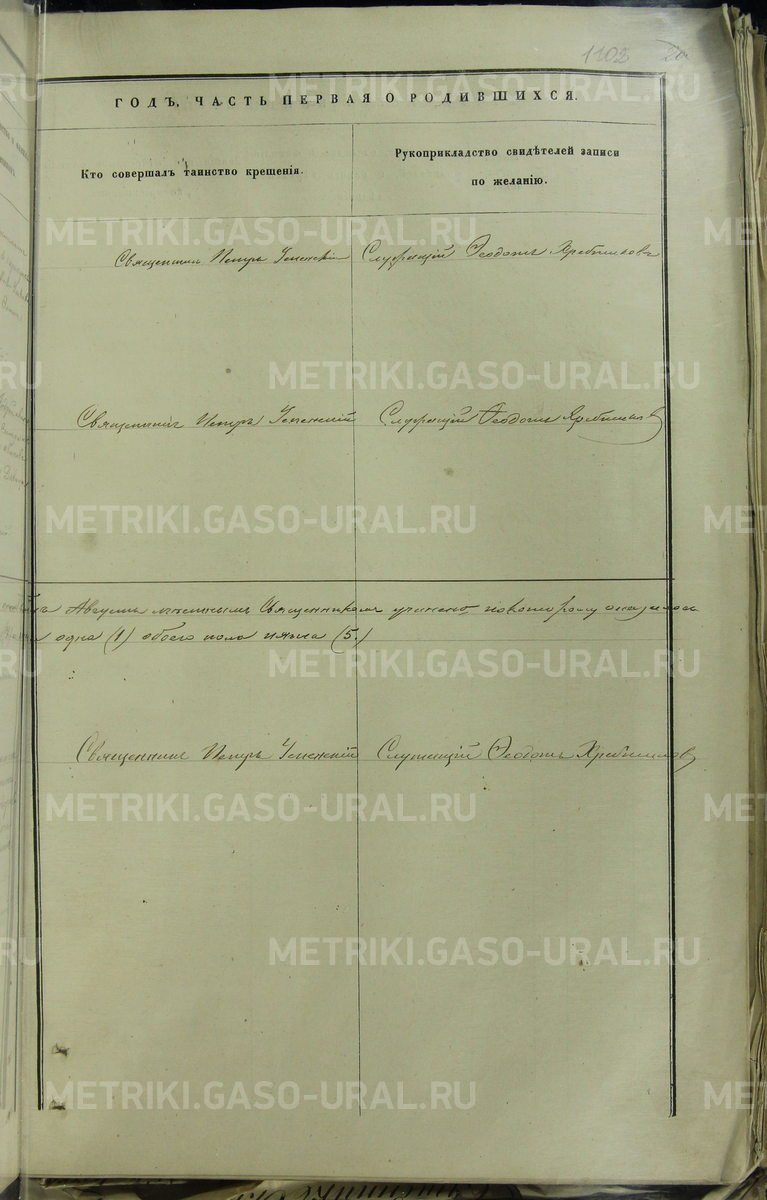 1102
ГОДЪ, ЧАСТЬ ПЕРВАЯ О РОДИВШИХСЯ.
Кто совершалъ таинство крещенія.
Рукоприкладство свидѣтелей записи
по желанію.
Священникъ Петръ Успенскій
Служащій Ѳеодотъ
Священникъ Петръ Успенскій
Служащій Ѳеодотъ
Августъ мѣстнымъ Священникомъ учинено по которому оказалось
одна (1) обоего пола пять (5.)
Священникъ Петръ Успенскій
Служащій Ѳеодотъ
METRIKI.GASO-URAL.RU